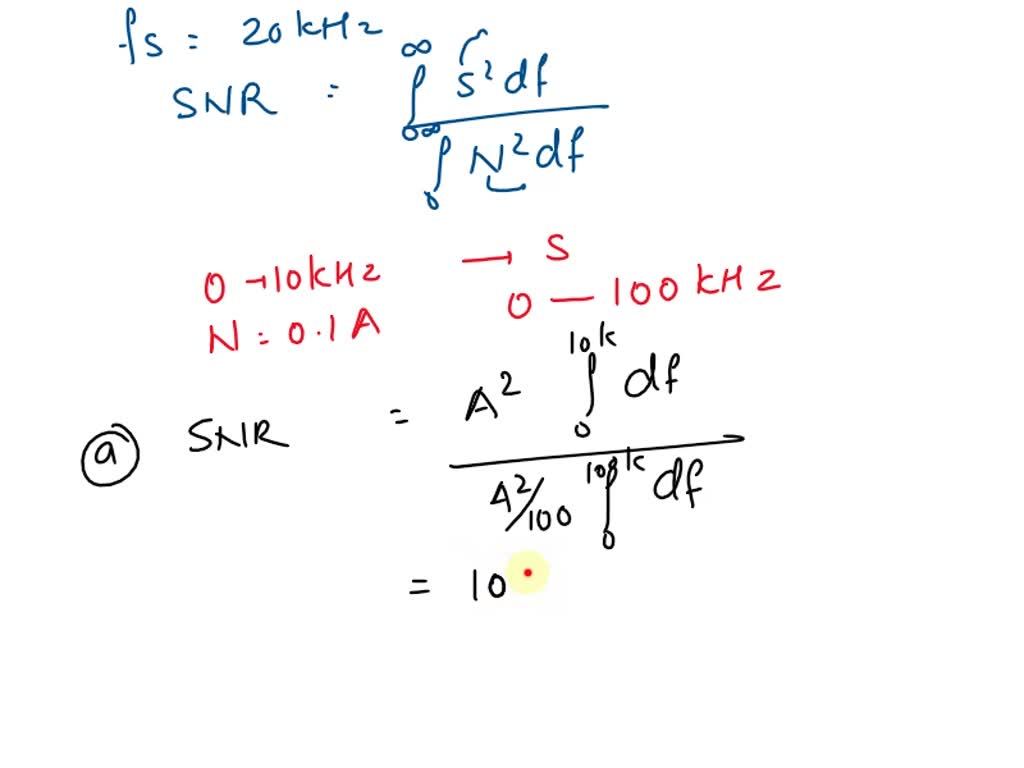 fs = 20 kHz
SNR = ∫₀^∞ S² df / ∫₀^∞ N² df
0 → 10 kHz → S
N = 0.1 A 0 — 100 kHz
(a) SNR = A² ∫₀^10k df / A²/100 ∫₀^100k df
= 10